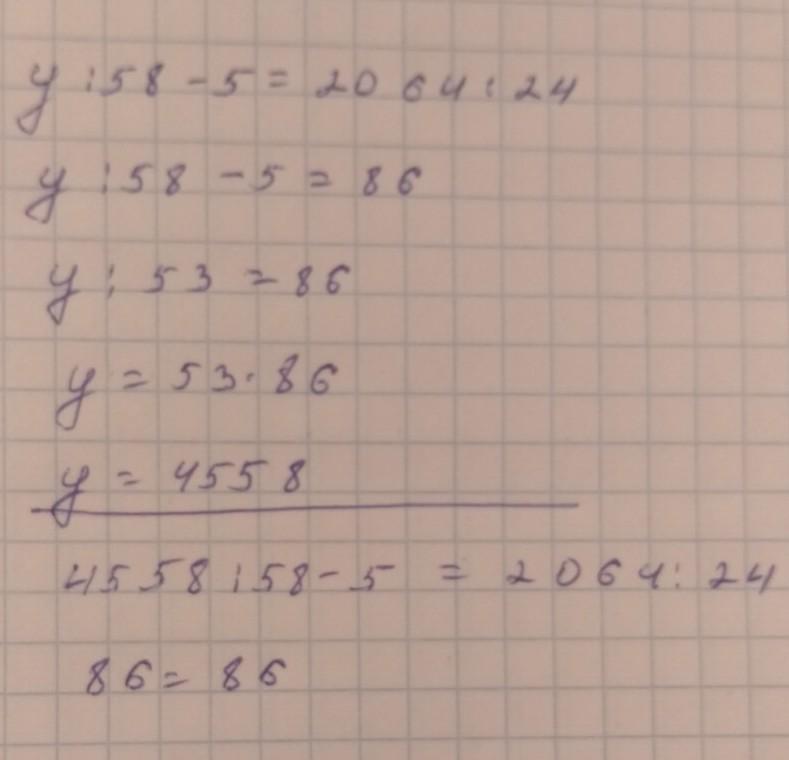 y : 58 - 5 = 2064 : 24
y : 58 - 5 = 86
y : 53 = 86
y = 53 · 86
y = 4558
4558 : 58 - 5 = 2064 : 24
86 = 86